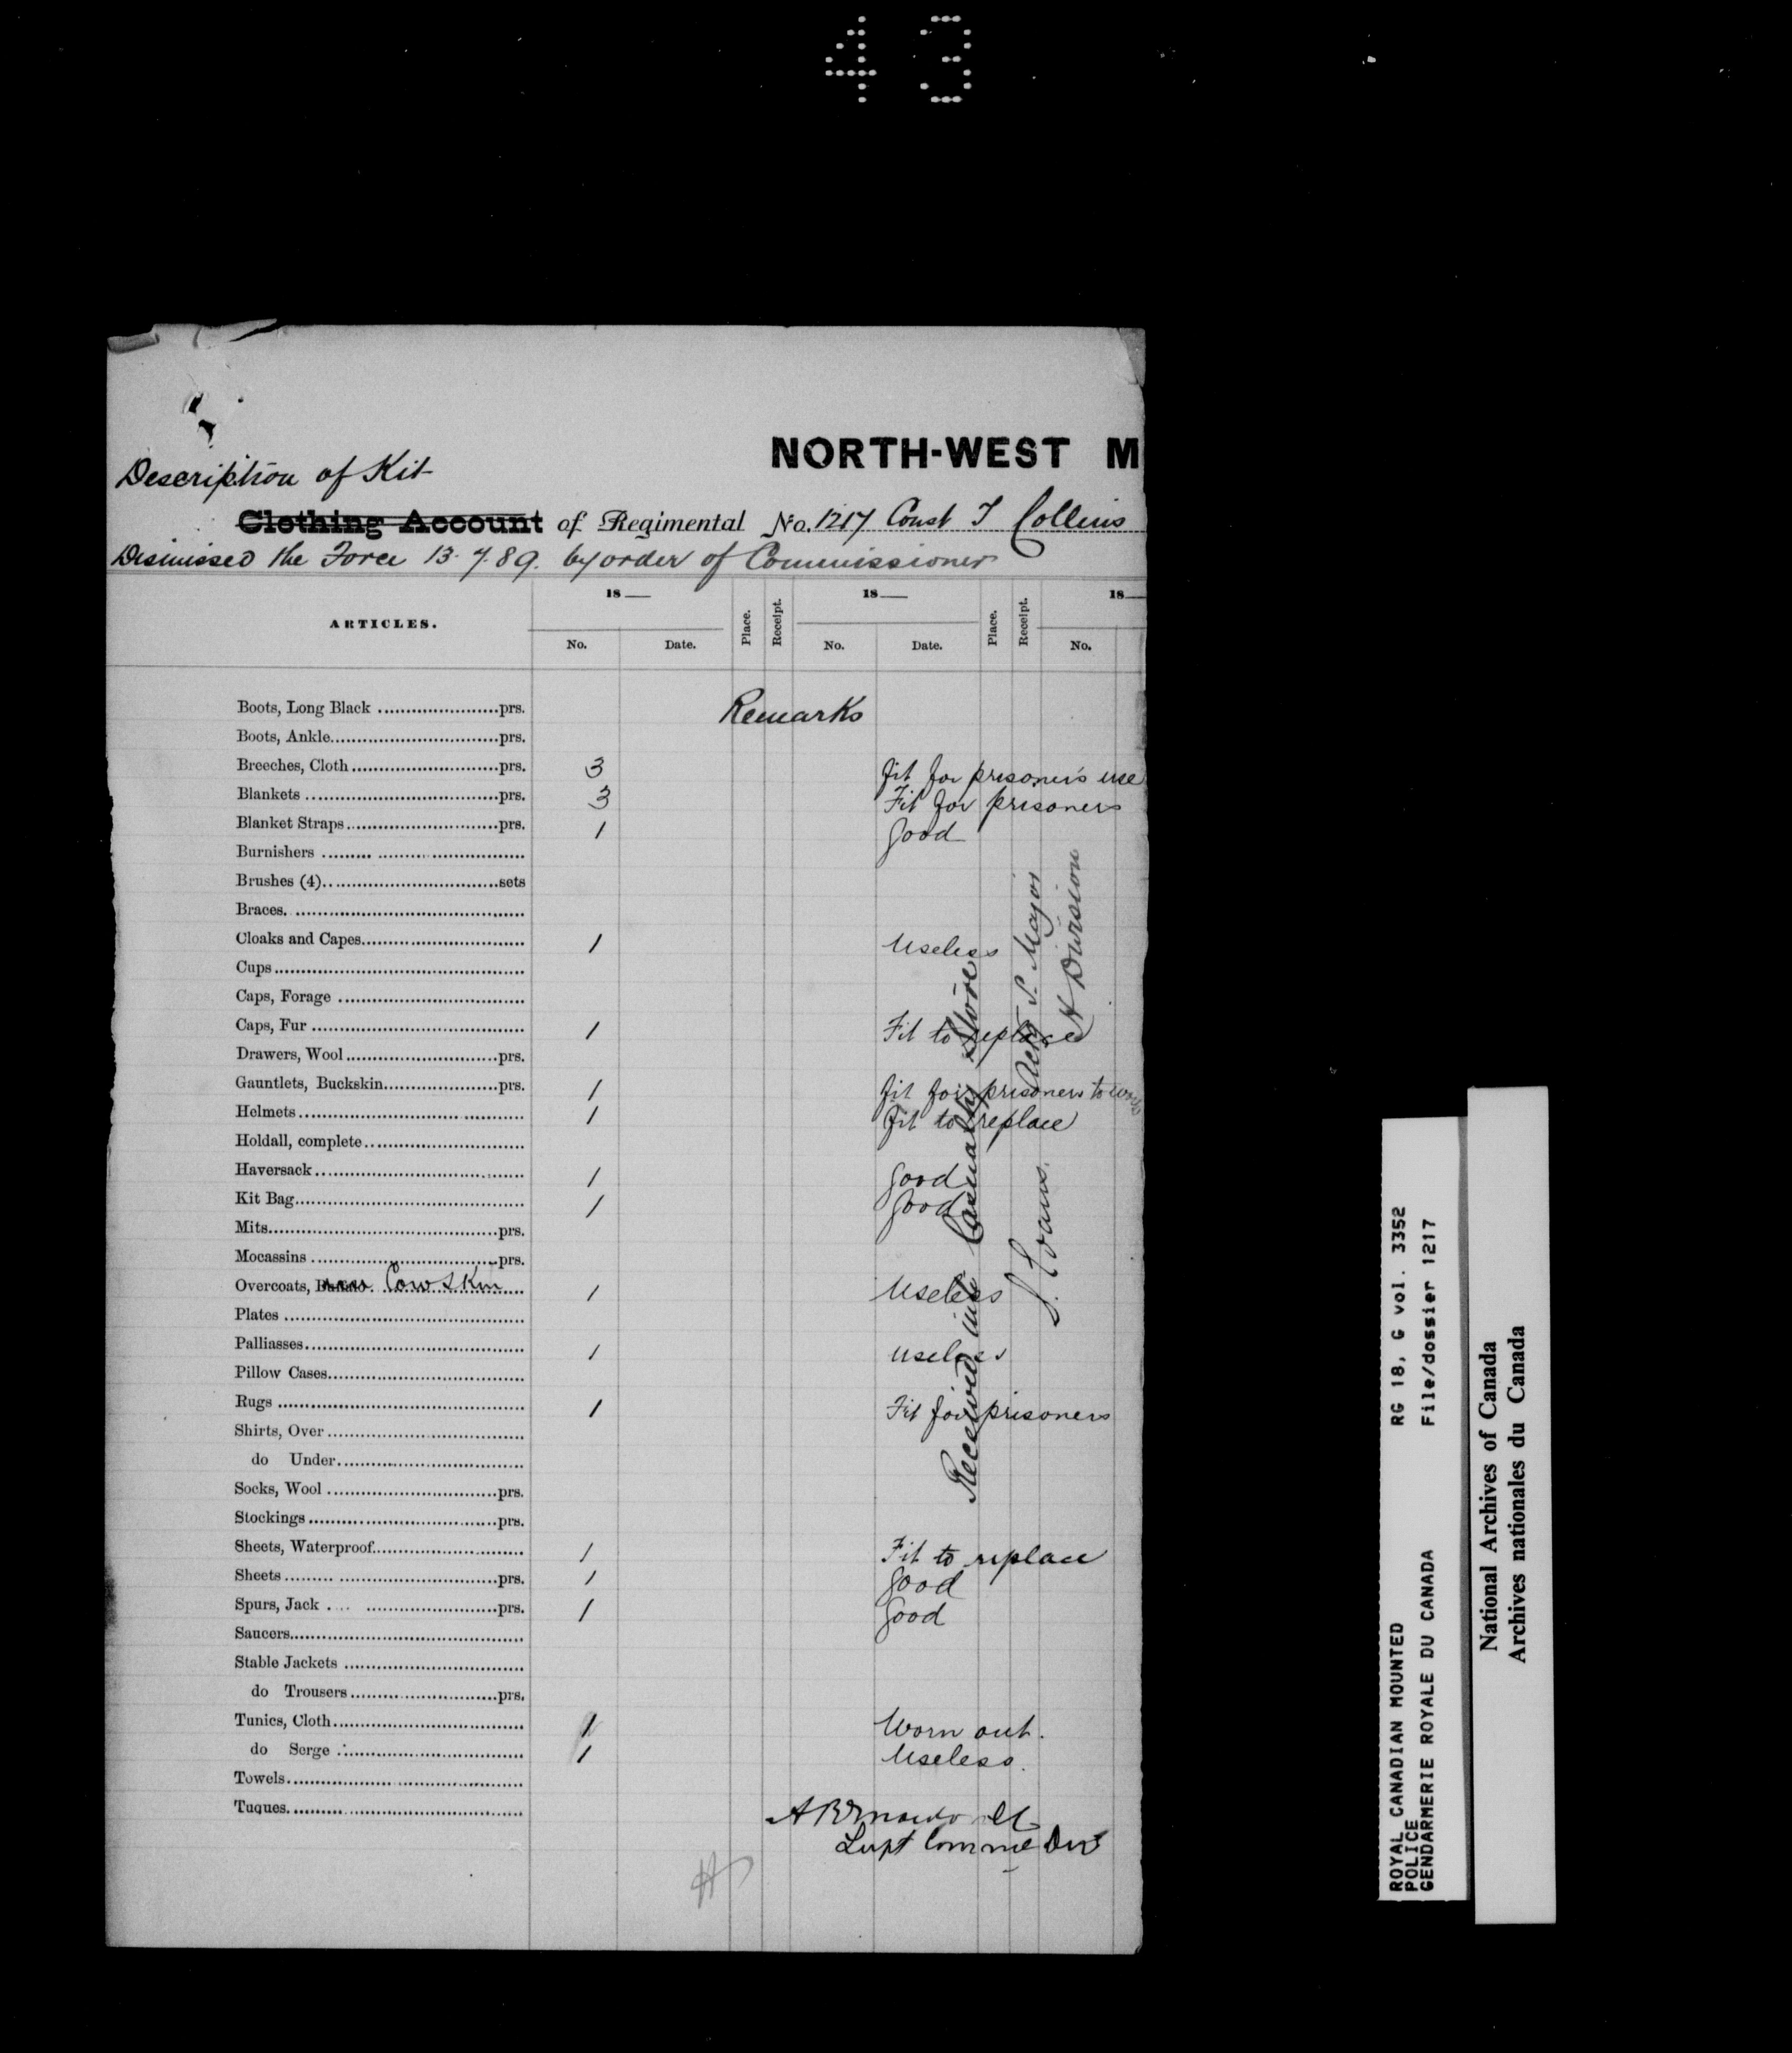 43
NORTH-WEST M
Description of Kit
Clothing Account of Regimental No. 1217 Const T Collins
Dismissed the Force 13.7.89. by order of Commissioner
ARTICLES.
18 Place. Receipt. 18 Place. Receipt. 18
No. Date. No. Date. No.
Remarks
Boots, Long Black prs.
Boots, Ankle prs.
Breeches, Cloth prs. 3 fit for prisoners use
Blankets prs. 3 Fit for prisoners
Blanket Straps prs. 1 good
Burnishers
Brushes (4) sets
Braces.
Cloaks and Capes 1 Useless
Cups
Caps, Forage
Caps, Fur 1 Fit to replace
Drawers, Wool prs.
Gauntlets, Buckskin prs. 1 fit for prisoners to
Helmets 1 fit to replace
Holdall, complete
Haversack 1 good
Kit Bag 1 good
Mits prs.
Mocassins prs.
Overcoats, Buffalo Cowskin 1 Useless
Plates
Palliasses 1 useless
Pillow Cases
Rugs 1 Fit for prisoners
Shirts, Over
do Under
Socks, Wool prs.
Stockings prs.
Sheets, Waterproof 1 Fit to replace
Sheets prs. 1 good
Spurs, Jack prs. 1 good
Saucers
Stable Jackets
do Trousers prs.
Tunics, Cloth 1 Worn out.
do Serge 1 Useless.
Towels
Tuques
Received into Casualty Store
Actg S. Major
A Division
Supt
A
ROYAL CANADIAN MOUNTED RG 18, G vol. 3352
POLICE
GENDARMERIE ROYALE DU CANADA File/dossier 1217
National Archives of Canada
Archives nationales du Canada